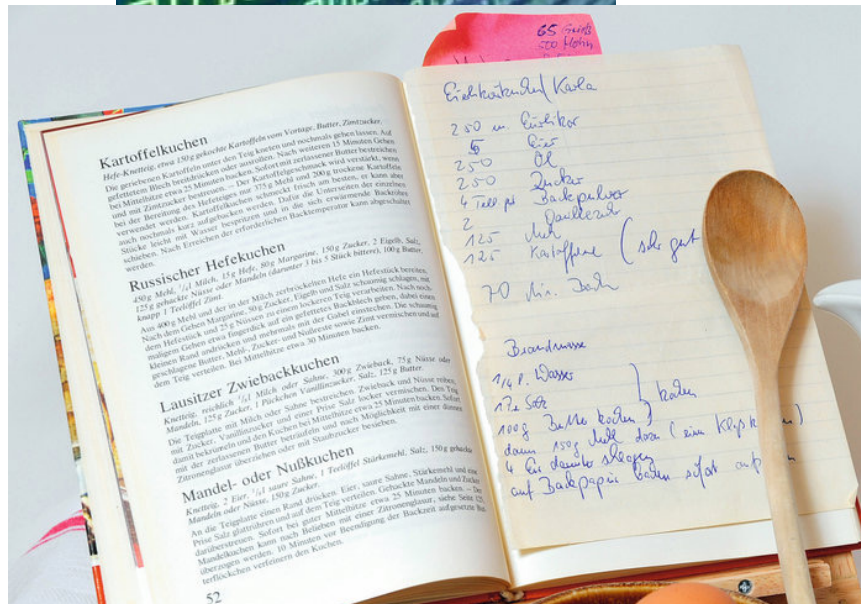 Kartoffelkuchen
Hefe-Knetteig, etwa 150 g gekochte Kartoffeln vom Vortage, Butter, Zimtzucker.
Die geriebenen Kartoffeln unter den Teig kneten und nochmals gehen lassen. Auf
gefettetem Blech breitdrücken oder ausrollen. Nach weiteren 15 Minuten Gehen
bei Mittelhitze etwa 25 Minuten backen. Sofort mit zerlassener Butter bestreichen
und mit Zimtzucker bestreuen. – Der Kartoffelgeschmack wird verstärkt, wenn
bei der Bereitung des Hefeteiges nur 375 g Mehl und 200 g trockene Kartoffeln
verwendet werden. Kartoffelkuchen schmeckt frisch am besten, er kann aber
auch nochmals kurz aufgebacken werden. Dafür die Unterseiten der einzelnen
Stücke leicht mit Wasser bespritzen und in die sich erwärmende Backröhre
schieben. Nach Erreichen der erforderlichen Backtemperatur kann abgeschaltet
werden.
Russischer Hefekuchen
450 g Mehl, 1/4 l Milch, 15 g Hefe, 80 g Margarine, 150 g Zucker, 2 Eigelb, Salz,
125 g gehackte Nüsse oder Mandeln (darunter 3 bis 5 Stück bittere), 100 g Butter,
knapp 1 Teelöffel Zimt.
Aus 400 g Mehl und der in der Milch zerbröckelten Hefe ein Hefestück bereiten.
Nach dem Gehen Margarine, 50 g Zucker, Eigelb und Salz schaumig schlagen, mit
dem Hefestück und 25 g Nüssen zu einem lockeren Teig verarbeiten. Nach noch-
maligem Gehen etwa fingerdick auf ein gefettetes Backblech geben, dabei einen
kleinen Rand andrücken und mehrmals mit der Gabel einstechen. Die schaumig
geschlagene Butter, Mehl-, Zucker- und Nußreste sowie Zimt vermischen und auf
dem Teig verteilen. Bei Mittelhitze etwa 30 Minuten backen.
Lausitzer Zwiebackkuchen
Knetteig, reichlich 1/4 l Milch oder Sahne, 300 g Zwieback, 75 g Nüsse oder
Mandeln, 125 g Zucker, 1 Päckchen Vanillinzucker, Salz, 125 g Butter.
Die Teigplatte mit Milch oder Sahne bestreichen. Zwieback und Nüsse reiben,
mit Zucker, Vanillinzucker und einer Prise Salz locker vermischen. Den Teig
damit bekrümeln und den Kuchen bei Mittelhitze etwa 25 Minuten backen. Sofort
mit der zerlassenen Butter beträufeln und nach Möglichkeit mit einer dünnen
Zitronenglasur überziehen oder mit Staubzucker besieben.
Mandel- oder Nußkuchen
Knetteig, 2 Eier, 1/4 l saure Sahne, 1 Teelöffel Stärkemehl, Salz, 150 g gehackte
Mandeln oder Nüsse, 150 g Zucker.
An die Teigplatte einen Rand drücken. Eier, saure Sahne, Stärkemehl und eine
Prise Salz glattrühren und auf dem Teig verteilen. Gehackte Mandeln und Zucker
darüberstreuen. Sofort bei guter Mittelhitze etwa 25 Minuten backen. – Der
Mandelkuchen kann nach Belieben mit einer Zitronenglasur, siehe Seite 125,
überzogen werden. 10 Minuten vor Beendigung der Backzeit aufgesetzte But-
terflöckchen verfeinern den Kuchen.
52
65 Grieß
500 Mohn
Eierlikörkuchen / Karla
250 ml Eierlikör
5 Eier
250 Öl
250 Zucker
4 Teel. Backpulver
2
125 Mehl
125 Kartoffelme (sehr gut
70 Min. Back
Brandmasse
1/4 l. Wasser
1 Pr. Salz
100g Butter kochen } kochen
dann 150g Mehl dazu (einen Kloß
4 Eier darunter schlagen
auf Backpapier backen sofort